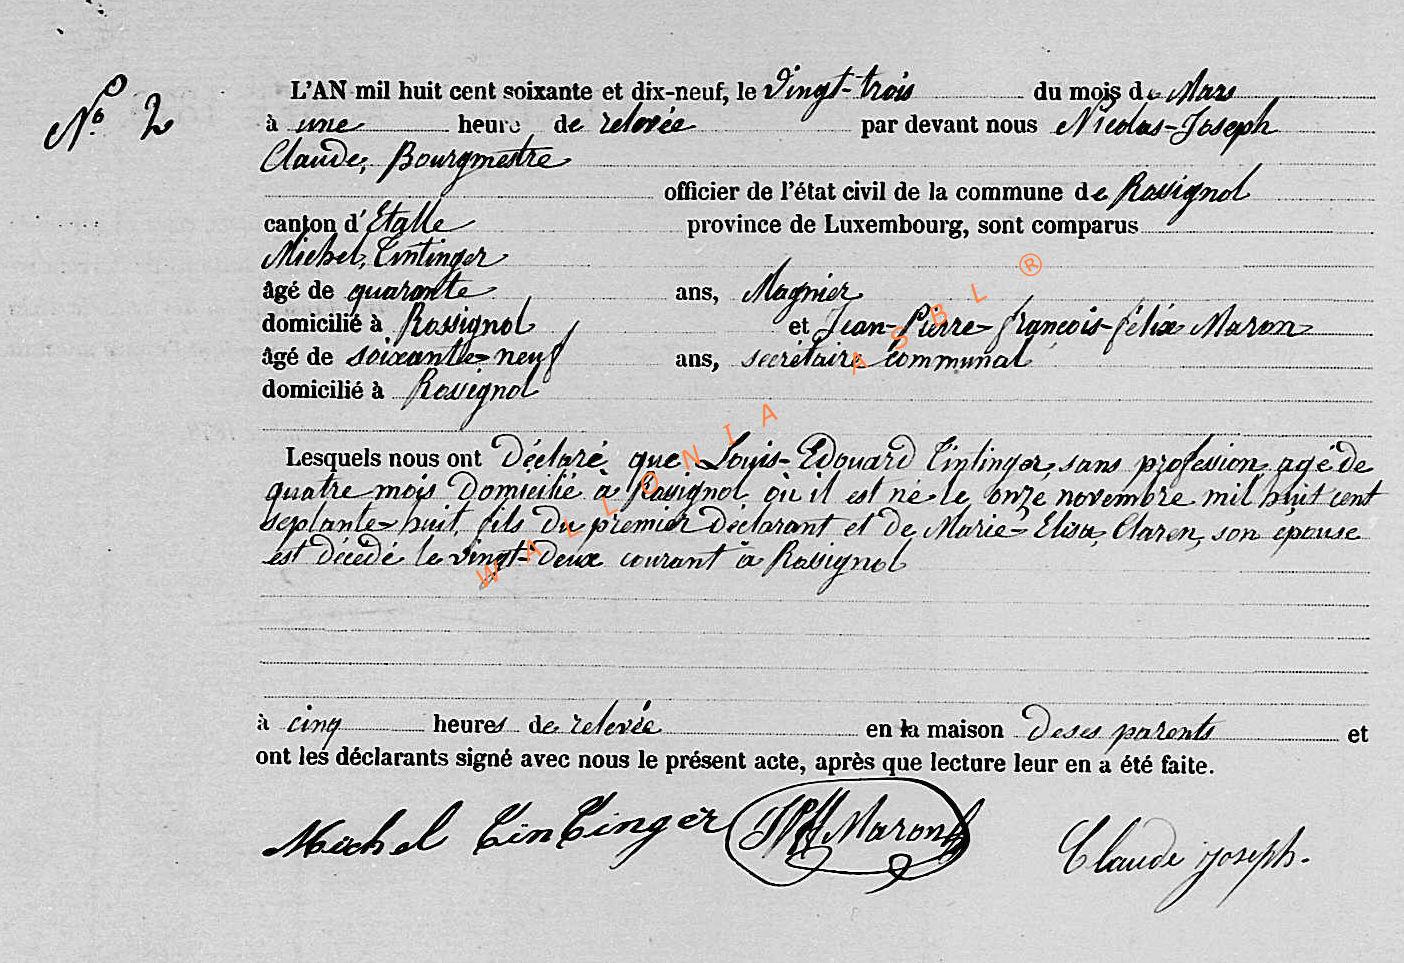 N° 2
L'AN mil huit cent soixante et dix-neuf, le Vingt-trois du mois de Mars
à une heure de relevée par devant nous Nicolas-Joseph
Claude, Bourgmestre
officier de l'état civil de la commune de Rossignol
canton d'Etalle province de Luxembourg, sont comparus
Michel, Tintinger
âgé de quarante ans, Magnier
domicilié à Rossignol et Jean-Pierre-françois-félix Maron
âgé de soixante-neuf ans, secrétaire communal
domicilié à Rossignol
Lesquels nous ont Déclaré que Louis-Edouard Tintinger, sans profession agé de
quatre mois Domicilié à Rossignol où il est né le onze novembre mil huit cent
septante-huit, fils du premier Déclarant et de Marie-Elisa, Claren, son épouse
est décédé le vingt-Deux courant à Rossignol
à cinq heures de relevée en la maison De ses parents et
ont les déclarants signé avec nous le présent acte, après que lecture leur en a été faite.
Michel TinTinger JPff Maron Claude joseph.
WALLONIA ASBL ®